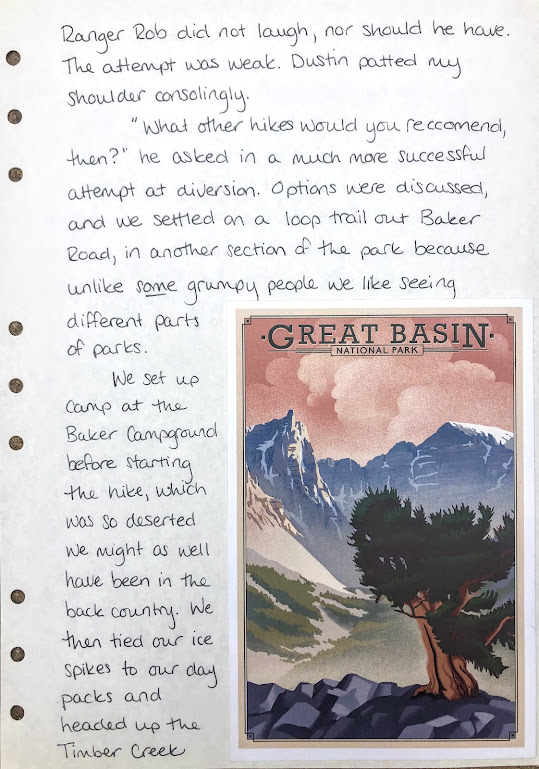 Ranger Rob did not laugh, nor should he have.
The attempt was weak. Dustin patted my
shoulder consolingly.
"What other hikes would you reccomend,
then?" he asked in a much more successful
attempt at diversion. Options were discussed,
and we settled on a loop trail out Baker
Road, in another section of the park because
unlike some grumpy people we like seeing
different parts
of parks.
We set up
camp at the
Baker Campground
before starting
the hike, which
was so deserted
we might as well
have been in the
back country. We
then tied our ice
spikes to our day
packs and
headed up the
Timber Creek
·GREAT BASIN·
NATIONAL PARK